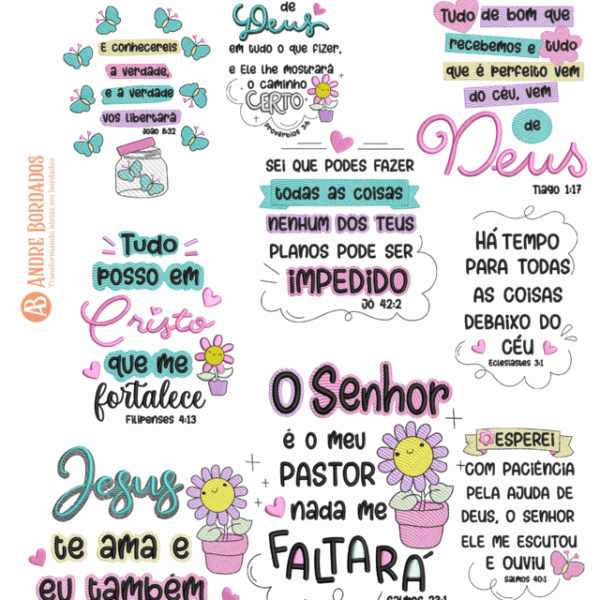 E CONHECEREIS
A VERDADE,
E A VERDADE
VOS LIBERTARÁ
JOÃO 8:32
de
Deus
EM TUDO O QUE FIZER,
E ELE LHE MOSTRARÁ
O CAMINHO
CERTO
PROVÉRBIOS 3:6
TUDO DE BOM QUE
RECEBEMOS E TUDO
QUE É PERFEITO VEM
DO CÉU, VEM
de
Deus
TIAGO 1:17
SEI QUE PODES FAZER
TODAS AS COISAS
NENHUM DOS TEUS
PLANOS PODE SER
IMPEDIDO
JÓ 42:2
ANDRE BORDADOS
Transformando ideias em bordados
AB
TUDO
POSSO EM
Cristo
QUE ME
fortalece
FILIPENSES 4:13
HÁ TEMPO
PARA TODAS
AS COISAS
DEBAIXO DO
CÉU
ECLESIASTES 3:1
O Senhor
É O MEU
PASTOR
NADA ME
FALTARÁ
SALMOS 23:1
ESPEREI
COM PACIÊNCIA
PELA AJUDA DE
DEUS, O SENHOR
ELE ME ESCUTOU
E OUVIU
SALMOS 40:1
Jesus
te ama e
eu também